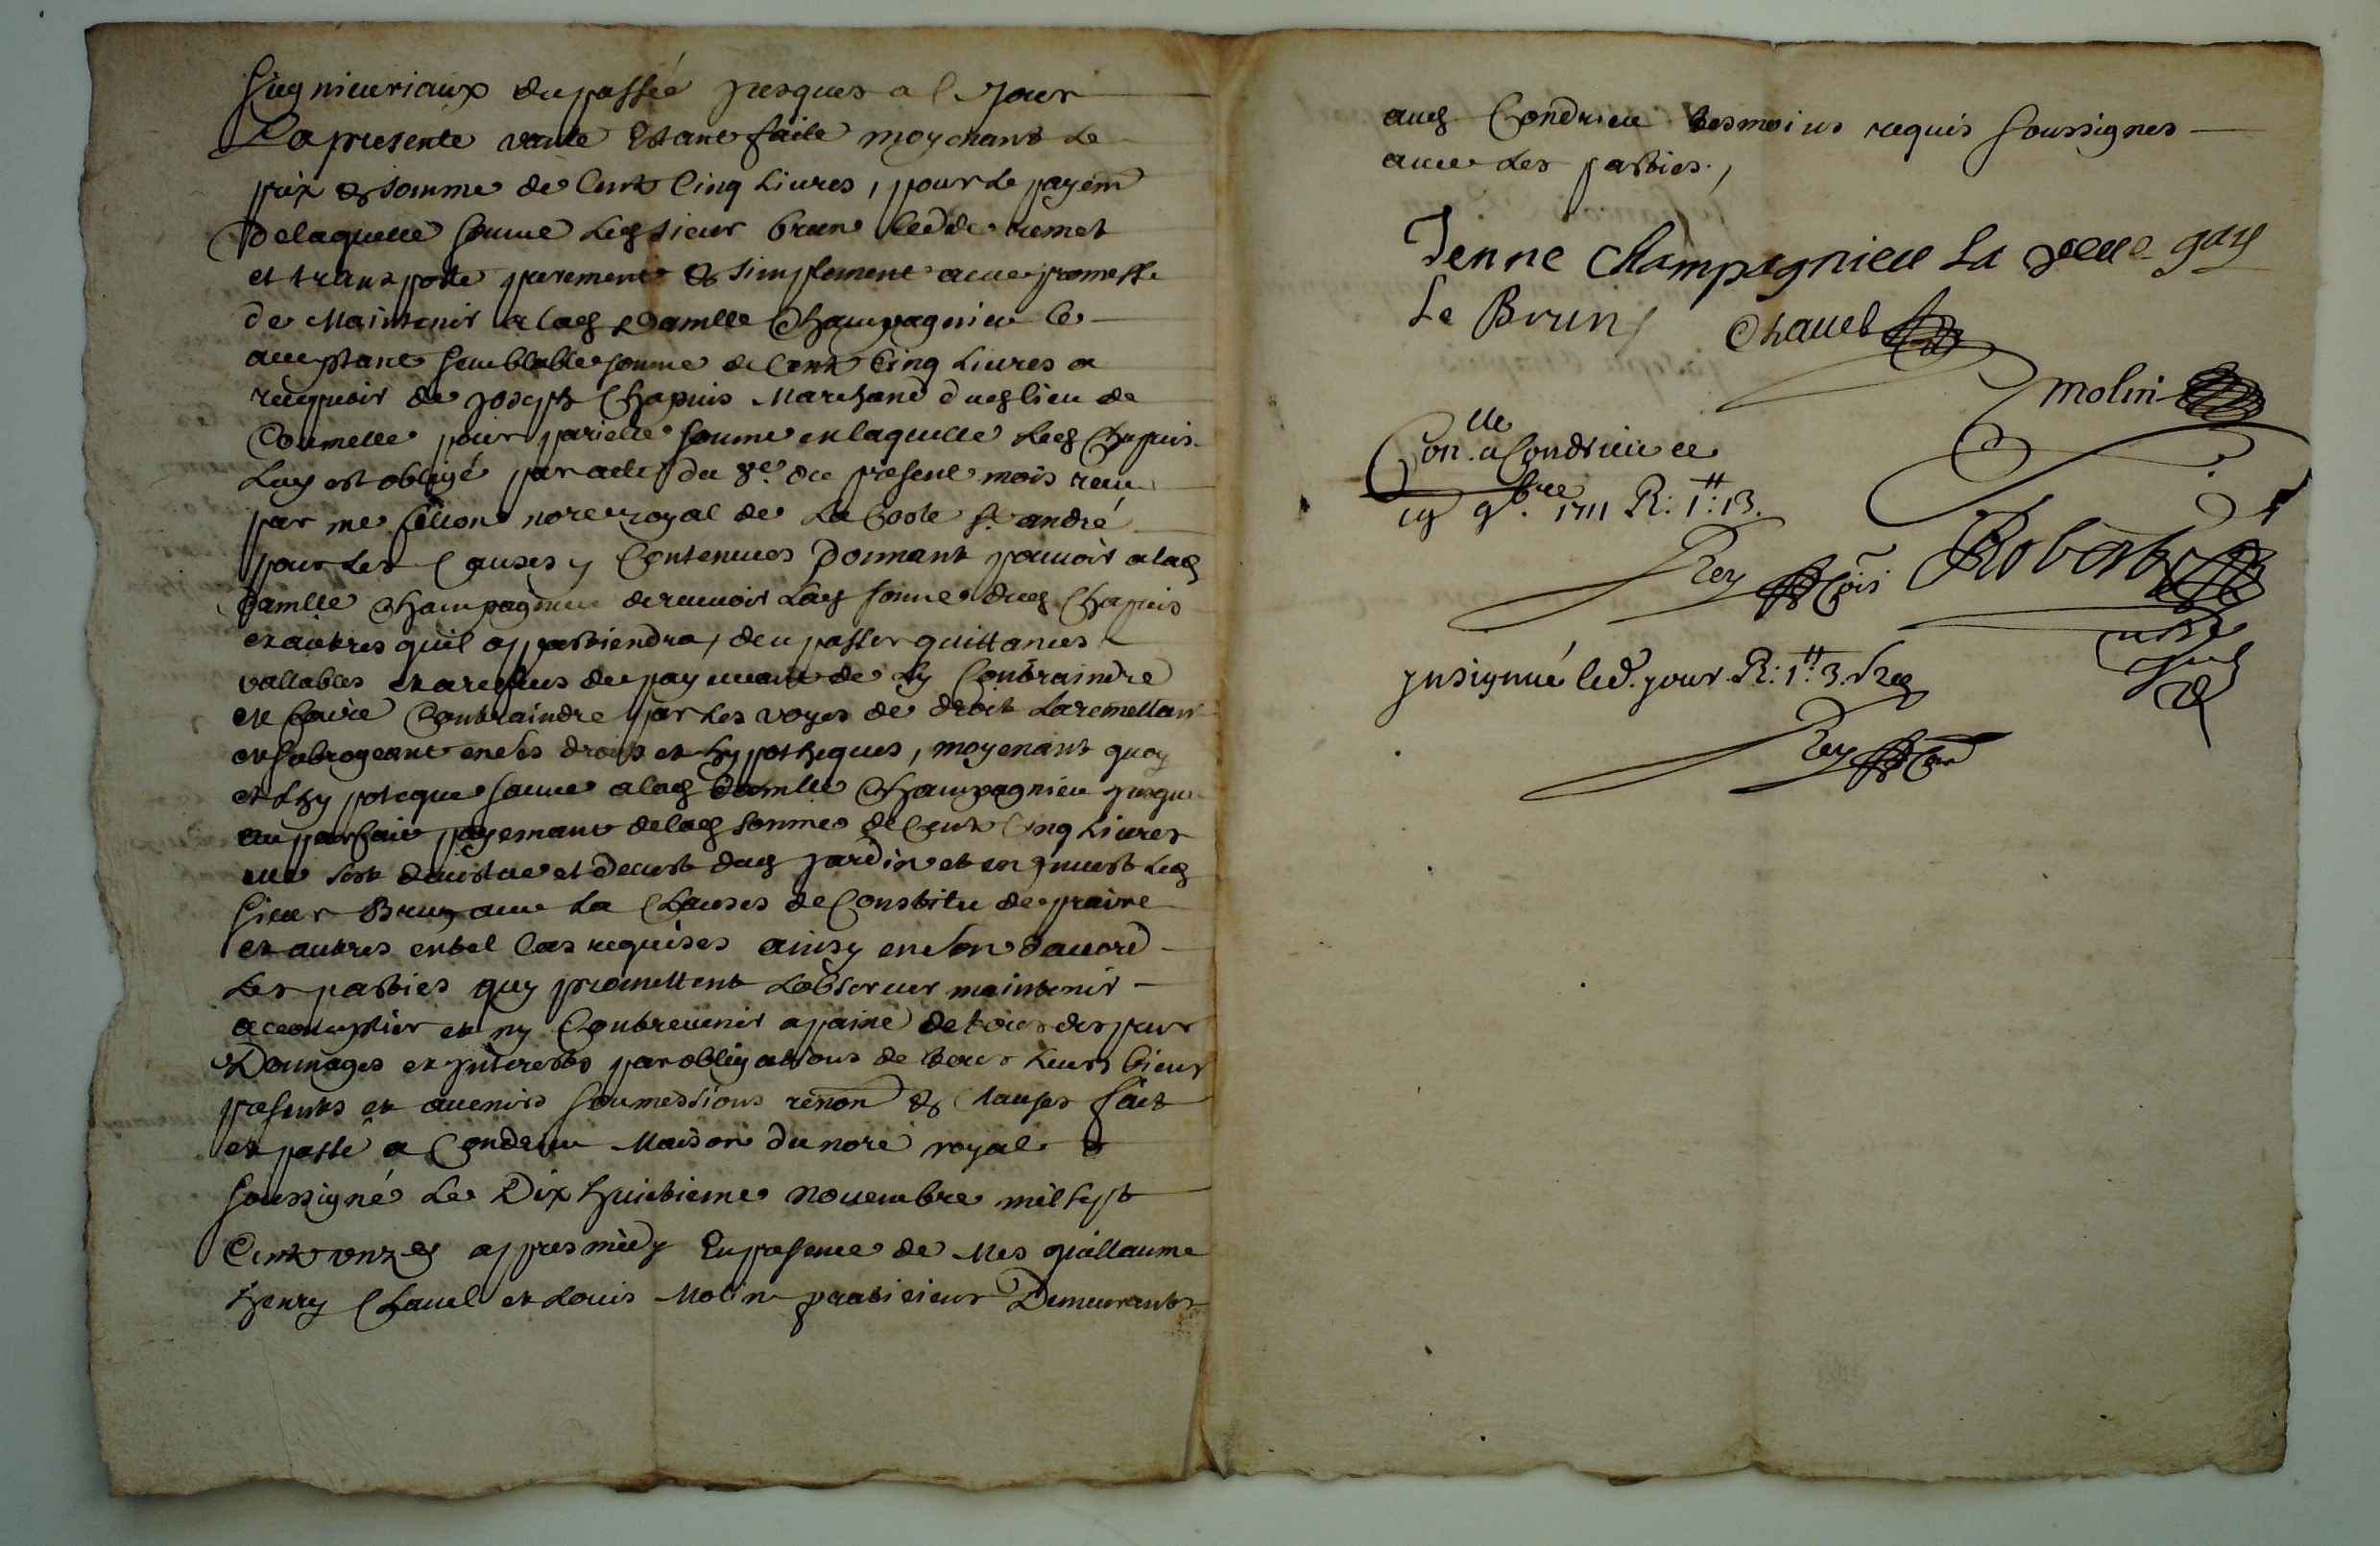 Siegnieuriaux du passée jusques a ce jour
La presente vante Estant faite moyenant Le
prix & somme de Cent Cinq Livres, pour le payem
de laquelle somme led sieur brun cedde remet
et transporte purement & simplement avec promesse
de Maintenir a lad damlle Champagnieu Ce
acceptant semblable somme de Cent Cinq Livres a
recepvoir de joseph Chapuis Marchand dud lieu de
pour parielle somme en laquelle led Chapuis
Luy est obligé par acte du 8e. du present mois receu
par me nore royal de La Coste st. andré
pour les Causes y Contenues Donnant pouvoir a lad
damlle Champagnieu de recevoir lad somme dud Chapuis
et autres quil appartiendra, den passer quittances
vallables et a reffus de payemant de Ly Contraindre
et faire Contraindre par les voyes de droit La remettant
et subrogeant en ses droits et hypotheques, moyenant quoy
et Lhy poteque sauve a lad damlle Champagnieu jusques
au parfait payemant de lad somme de Cent Cinq Livres
sest devistue et devest dud jardin et en jnvest led
sieur Brun avec La Clauses de Constitu de praire
et autres en tel Cas requises ainsy en son daccord
Les parties quy promettent Lobserver maintenir
et ny Contrevenir a paine de tous despans
Domages et jnterests par obligations de tous Leurs biens
presents et avenirs soumessions renon & Clauses fait
et passé a Condrieu Maison du nore royal
soussigné Le Dix huictieme novembre mil sept
Cent onze appres midy En presence de Mes guillaume
henry Chavel et Louis Molin praticiens Demeurants
aud Condrieu tesmoins requis soussignes
avec Les parties.,
Jenne Champagnieu La gay
Le Brun Chavel
Molin
Conlle a Condrieu ce
9bre 1711 R: 1# 13.
Rey Cois
Robert
jnsignué led. jour. R: 1# 3.
Rey